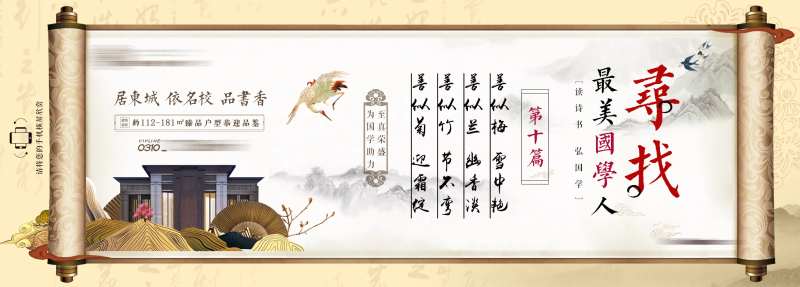 尋找
最美國學人
[读诗书 弘国学]
第十篇
善似梅 雪中艳
善似兰 幽香淡
善似竹 节不弯
善似菊 迎霜绽
至真荣盛
为国学助力
居東城 依名校 品書香
112-181㎡臻品户型恭迎品鉴
0310
请将您的手机横屏欣赏